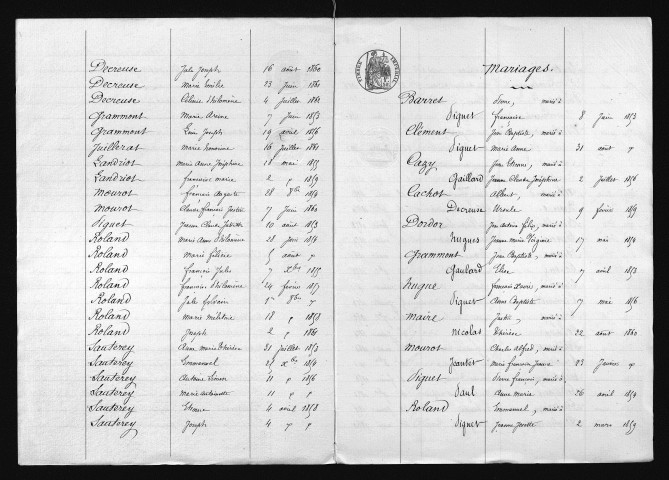 Decreuse Jule Joseph 16 août 1860
Decreuse Marie Emilie 23 Juin 1861
Decreuse Celanie Philomine 4 Juillet 1862
Grammont Marie Arsene 7 Juin 1853
Grammont Louis Joseph 19 avril 1856
Juillerat Marie 16 Juillet 1861
Landriot Marie Anne Joséphine 18 mai 1855
Landriot françoise marie 2 " 1859
Mourot françois Auguste 28 9bre 1854
Mourot Claude françois Justin 7 Juin 1860
Piquet Jeanne Claude Juliette 10 août 1853
Roland Marie Anne Philomine 28 Juin 1854
Roland Marie félicie 5 août "
Roland françois Jules 7 Xbre 1855
Roland françoise Philomine 24 février 1857
Roland Jule Sylvain 1er 9bre "
Roland Marie 18 " 1858
Roland Joseph 2 " 1861
Sauterey Anne marie Thérèse 31 Juillet 1853
Sauterey Emmanuel 28 Xbre 1854
Sauterey Antoine Simon 11 " 1856
Sauterey Marie Antoinette 11 " "
Sauterey Etienne 4 avril 1858
Sauterey Joseph 4 " "
Mariages.
Barret Pierre, marié à
Piquet françoise 8 Juin 1853
Clement Jean Baptiste, marié à
Piquet Marie Anne 31 août "
Cazy Jean Etienne, marié à
Gaillard Jeanne Claude Joséphine 2 Juillet 1856
Cachot Albert, marié à
Decreuse Ursule 9 février 1859
Dordor Jean Antoine felix, marié à
Hugues Jeanne marie Virginie 17 mai 1854
Grammont Jean Baptiste, marié à
Gaulard Elise 7 avril 1853
Hugue françois Xavier, marié à
Piquet Anne Baptiste 17 mai 1856
Maire Justin, marié à
Nicolas Thérèse 22 août 1860
Mourot Charles Alfred, marié à
Marie françoise Jeanne 23 Janvier "
Piquet Pierre françois, marié à
Paul Anne Marie 26 avril 1854
Roland Emmanuel, marié à
Piquet Jeanne Josette 2 mars 1859